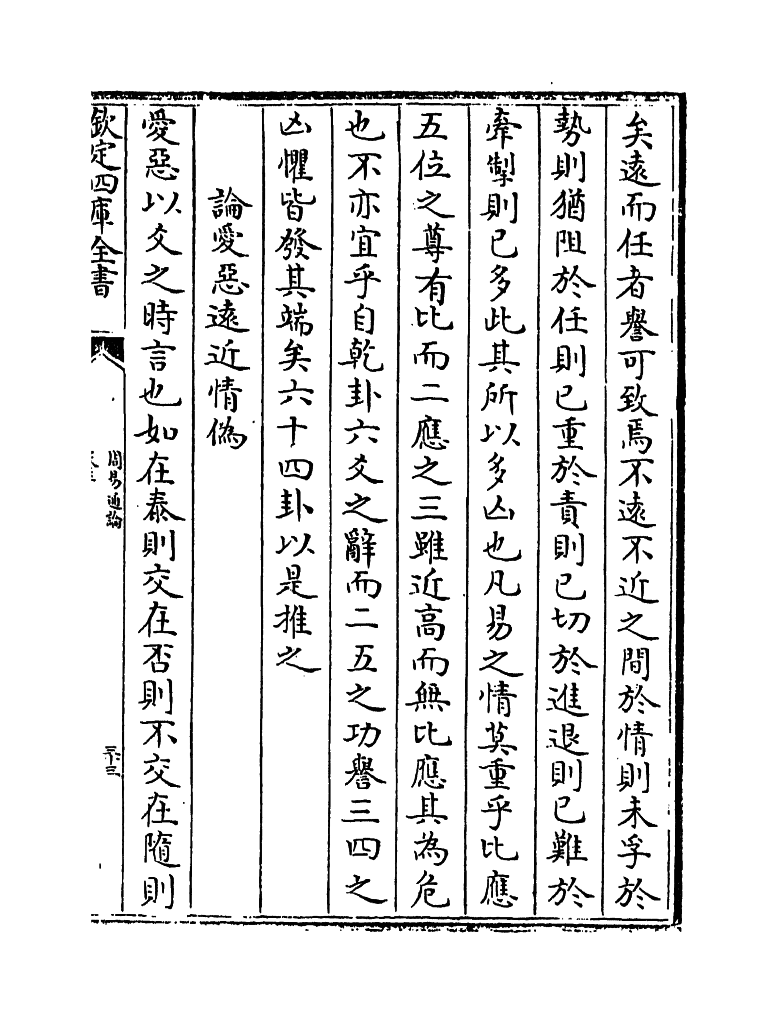 矣遠而任者譽可致焉不遠不近之間於情則未孚於
勢則猶阻於任則已重於責則已切於進退則已難於
牽掣則已多此其所以多凶也凡易之情莫重乎比應
五位之尊有比而二應之三雖近高而無比應其為危
也不亦宜乎自乾卦六爻之辭而二五之功譽三四之
凶懼皆發其端矣六十四卦以是推之
論愛惡遠近情偽
愛惡以爻之時言也如在泰則交在否則不交在隨則
欽定四庫全書
周易通論
三十三